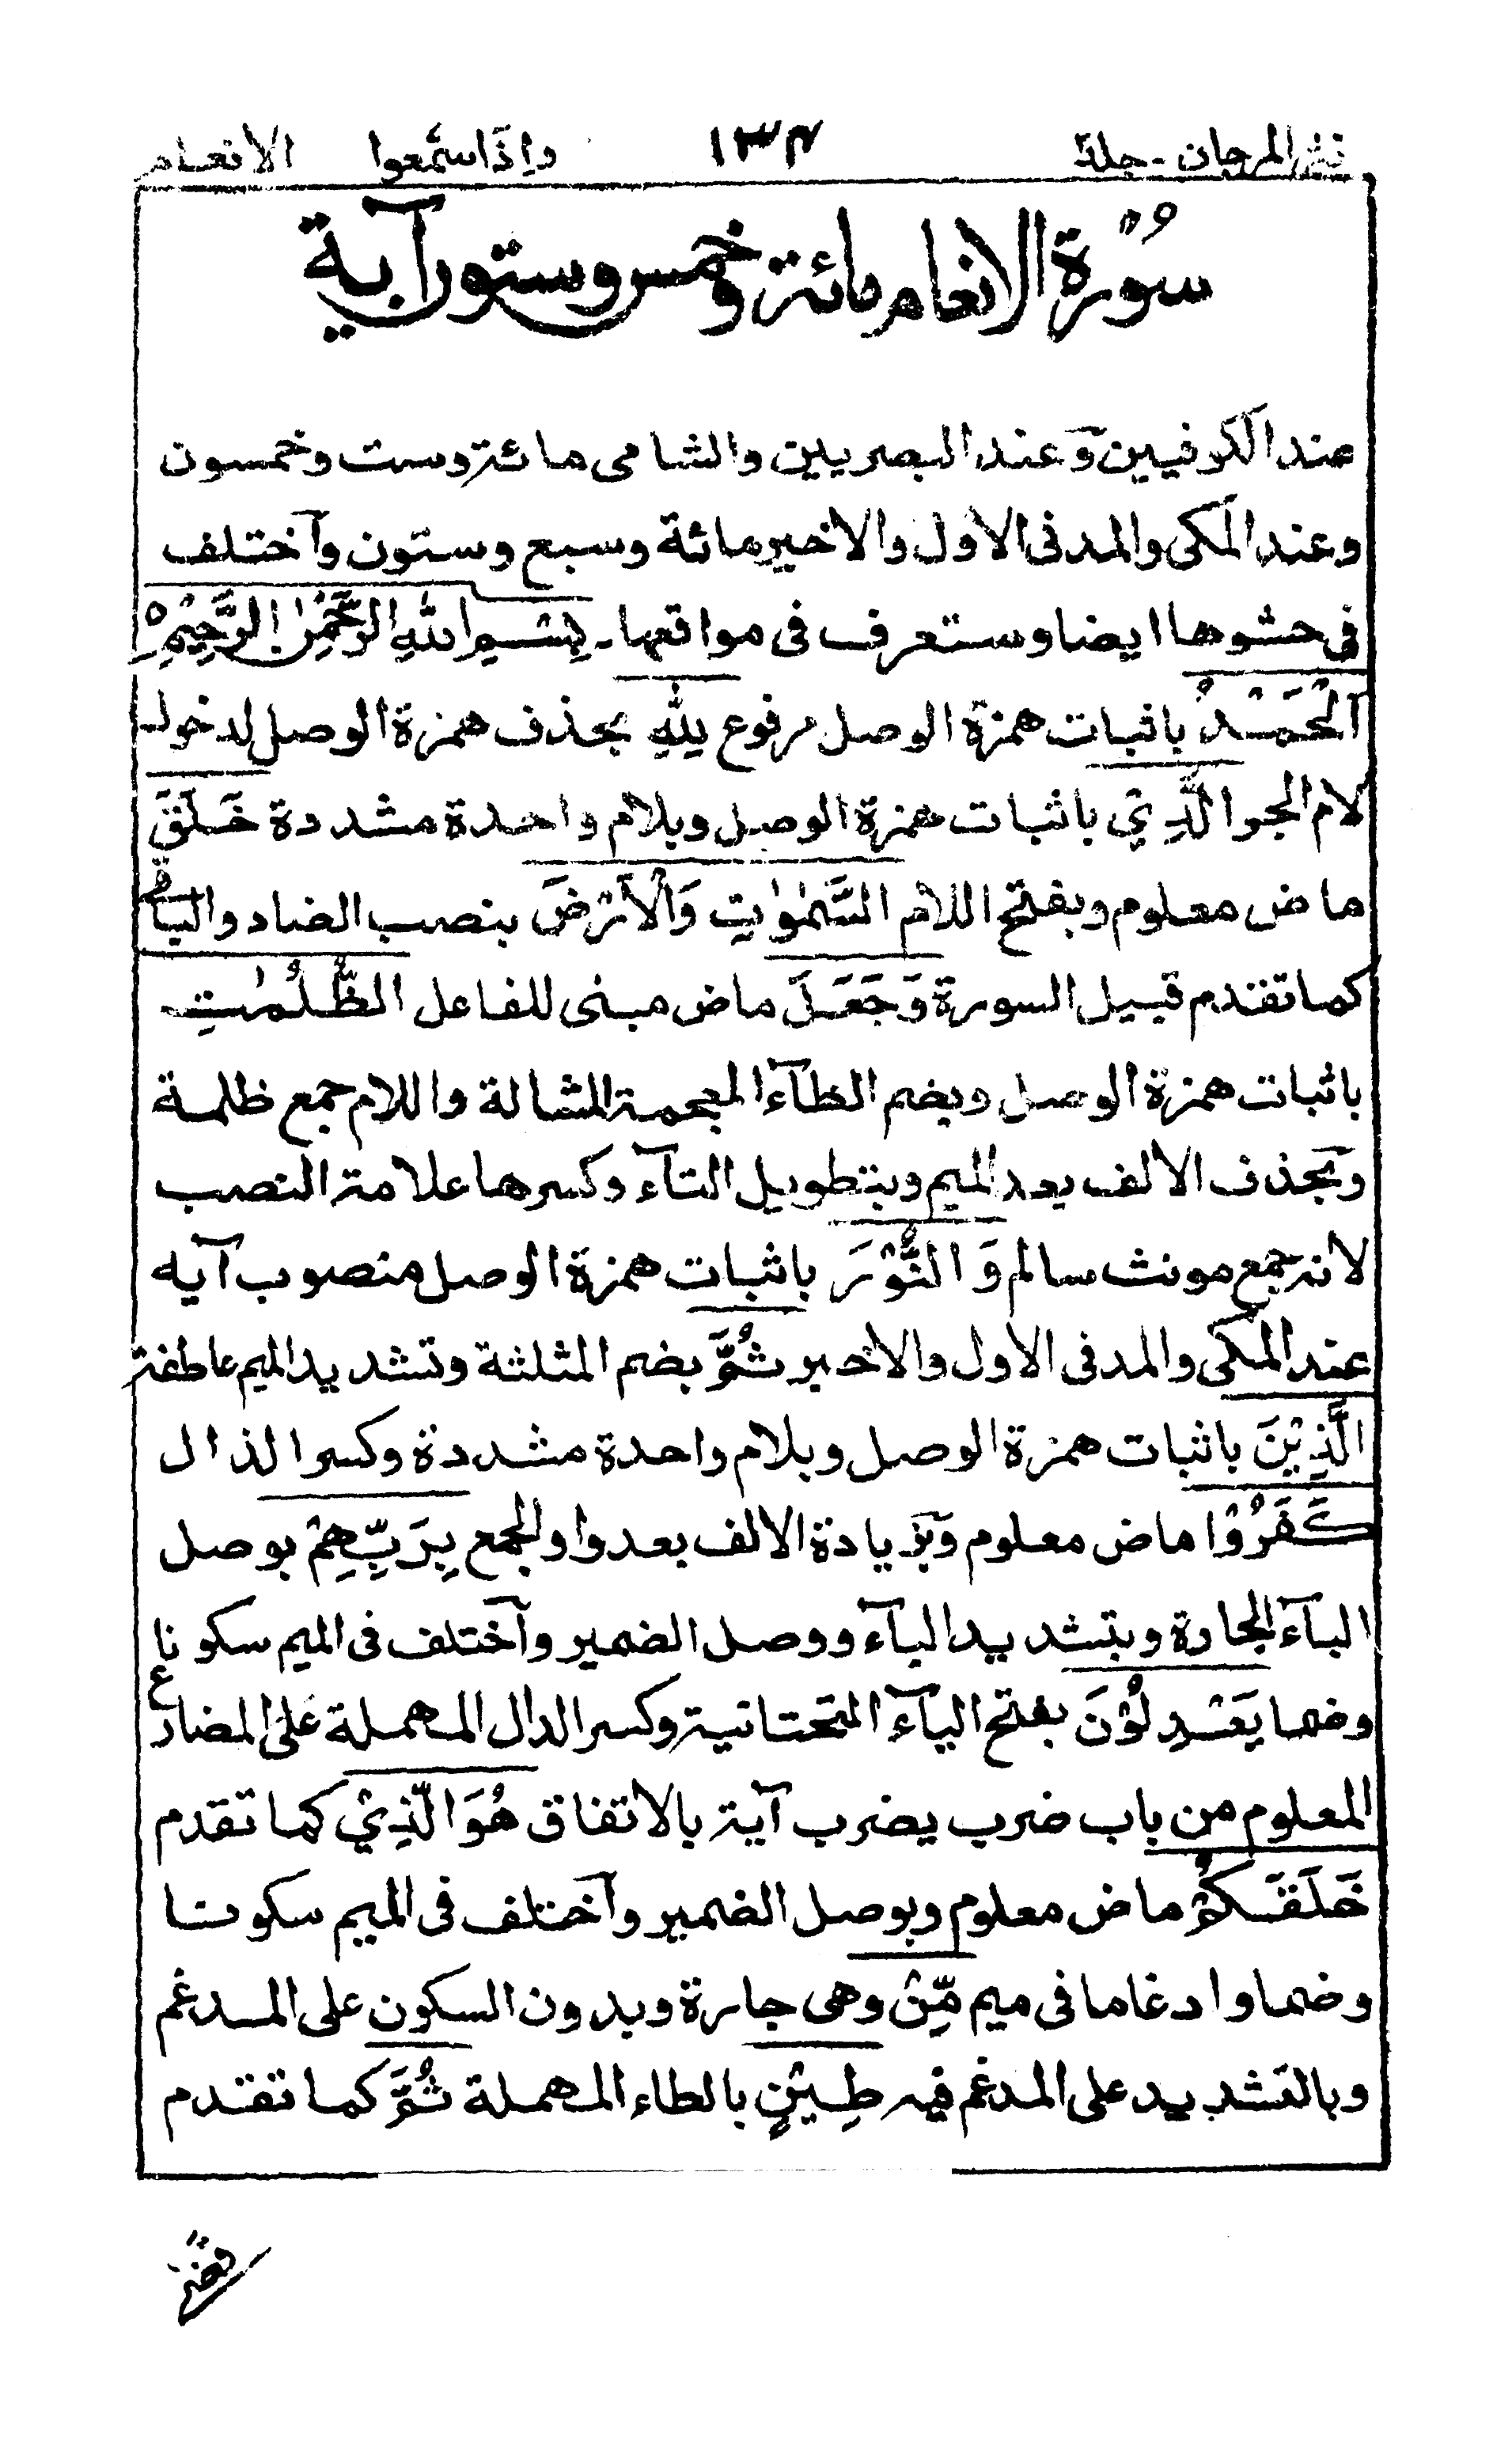 نثر المرجان - جلد ١٣٤ واذا سمعوا الانعام
سُوْرَة الانعام مائة وخمس وستون آية
عند الكوفيين وعند البصريين والشامى مائة وست وخمسون
وعند المكى والمدنى الاول والاخير مائة وسبع وستون وآختلف
فى حشوها ايضا وستعرف فى مواقعها۔ بِسْمِ اللهِ الرَّحْمٰنِ الرَّحِيْمِ
اَلْحَمْدُ باثبات همزة الوصل مرفوع لِلّٰهِ بحذف همزة الوصل لدخول
لام الجر الَّذِيْ باثبات همزة الوصل وبلام واحدة مشددة خَلَقَ
ماض معلوم وبفتح اللام السَّمٰوٰتِ وَالْاَرْضَ بنصب الضاد والباقى
كما تقدم قبيل السورة وَجَعَلَ ماض مبنى للفاعل الظُّلُمٰتِ
باثبات همزة الوصل وبضم الظآء المعجمة المشالة واللام جمع ظلمة
وبحذف الالف بعد الميم وبتطويل التآء وكسرها علامة النصب
لانه جمع مونث سالم وَالنُّوْرَ باثبات همزة الوصل منصوب آية
عند المكى والمدنى الاول والاخير ثُمَّ بضم المثلثة وتشديد الميم عاطفة
الَّذِيْنَ باثبات همزة الوصل وبلام واحدة مشددة وكسر الذال
كَفَرُوْا ماض معلوم وبزيادة الالف بعد واو الجمع بِرَبِّهِمْ بوصل
البآء الجارة وبتشديد البآء ووصل الضمير وآختلف فى الميم سكونا
وضما يَعْدِلُوْنَ بفتح اليآء التحتانية وكسر الدال المهملة على المضارع
المعلوم من باب ضرب يضرب آية بالاتفاق هُوَ الَّذِيْ كما تقدم
خَلَقَكُمْ ماض معلوم وبوصل الضمير وآختلف فى الميم سكونا
وضما وادغاما فى ميم مِّنْ وهى جارة وبدون السكون على المدغم
وبالتشديد على المدغم فيه طِيْنٍ بالطاء المهملة ثُمَّ كما تقدم